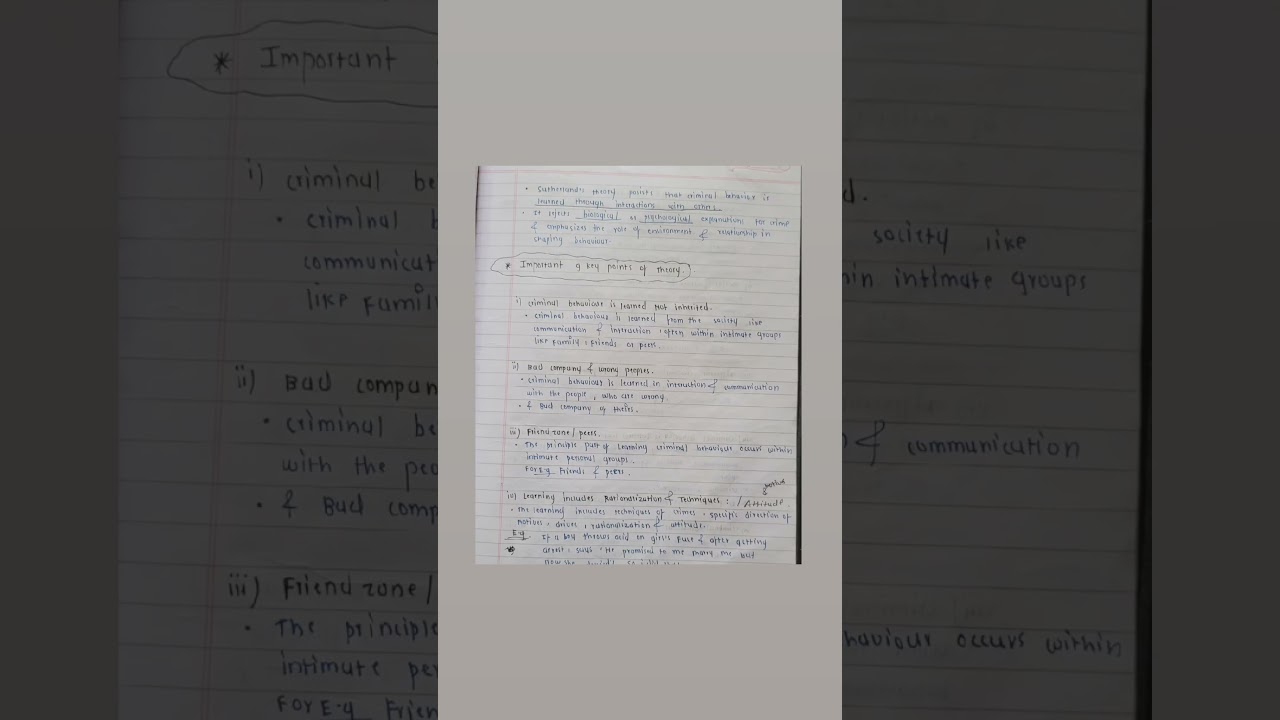 • Sutherlands theory points that criminal behavior is
learned through interactions with others.
• It rejects biological or psychological explanations for crime
& emphasizes the role of environment & relationship in
shaping behaviour.
* Important 9 key points of theory.
i) criminal behaviour is learned Not inherited.
• criminal behaviour is learned from the society like
communication & interaction, often within intimate groups
like Family, Friends or peers.
ii) Bad company & wrong peoples.
• criminal behaviour is learned in interaction & communication
with the people, who are wrong.
• & Bad company of theirs.
iii) Friend zone / peers.
• The principle part of learning criminal behaviour occurs within
intimate personal groups.
For E.g Friends & peers.
iv) Learning includes Rationalization & Techniques : / Attitude.
• The learning includes techniques of crimes, specific direction of
motives, drives, rationalization & attitude.
E.g If a boy throws acid on girl's face & after getting
arrest, says, He promised to me marry me but
* Important
i) criminal be
• criminal b
communicat
like Family
ii) Bad compan
• criminal be
with the peo
• & Bad comp
iii) Friend zone /
• The principle
intimate per
For E.g Frien
d.
society like
hin intimate groups
& communication
haviour occurs within